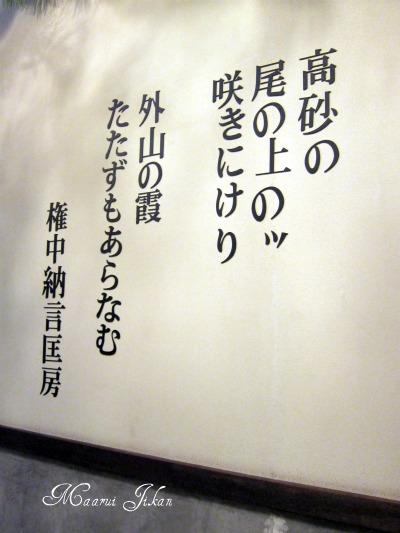 高砂の
尾の上のッ
咲きにけり
外山の霞
たたずもあらなむ
権中納言匡房
Maarui Jikan